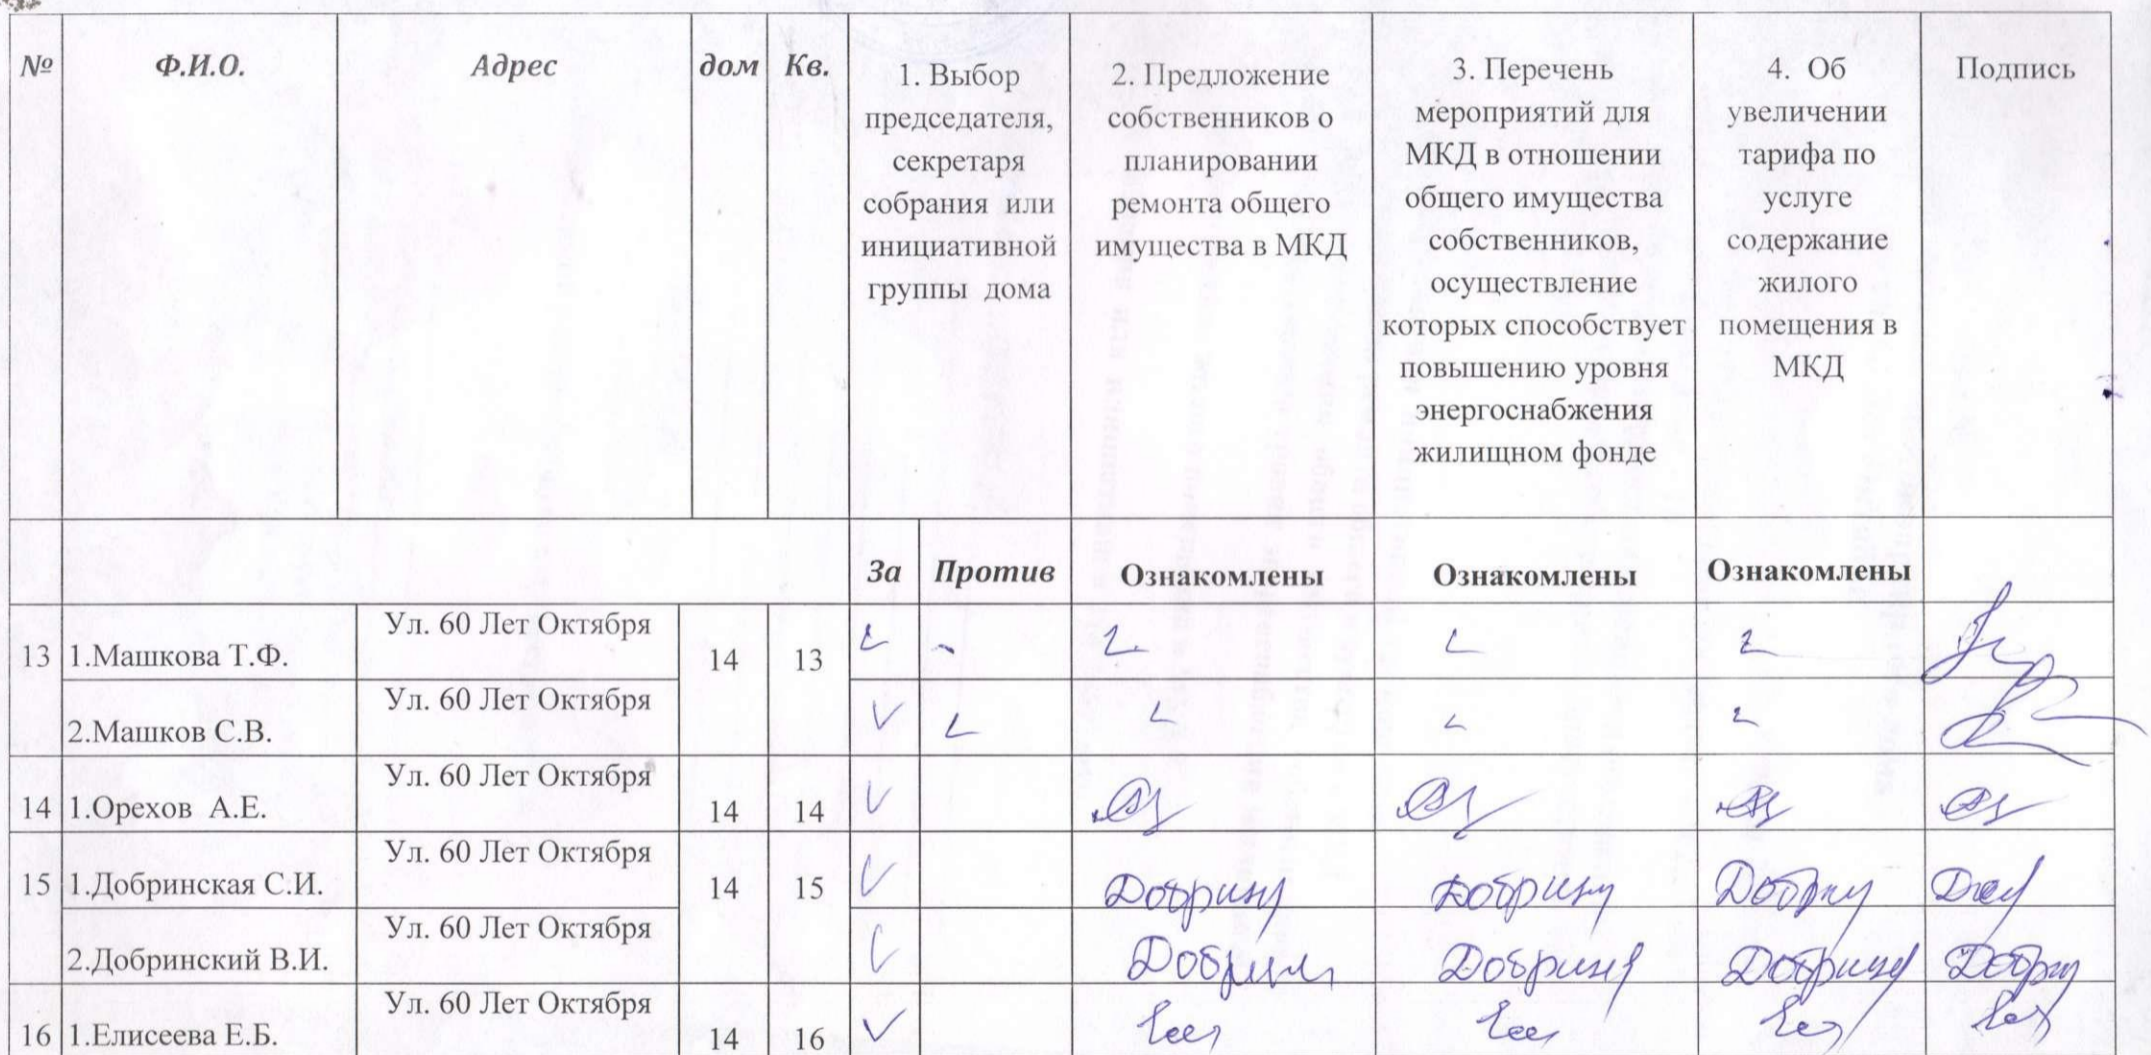 № Ф.И.О. Адрес дом Кв. 1. Выбор председателя, секретаря собрания или инициативной группы дома 2. Предложение собственников о планировании ремонта общего имущества в МКД 3. Перечень мероприятий для МКД в отношении общего имущества собственников, осуществление которых способствует повышению уровня энергоснабжения жилищном фонде 4. Об увеличении тарифа по услуге содержание жилого помещения в МКД Подпись
За Против Ознакомлены Ознакомлены Ознакомлены
13 1.Машкова Т.Ф. Ул. 60 Лет Октября 14 13
2.Машков С.В. Ул. 60 Лет Октября
14 1.Орехов А.Е. Ул. 60 Лет Октября 14 14
15 1.Добринская С.И. Ул. 60 Лет Октября 14 15
2.Добринский В.И. Ул. 60 Лет Октября
16 1.Елисеева Е.Б. Ул. 60 Лет Октября 14 16